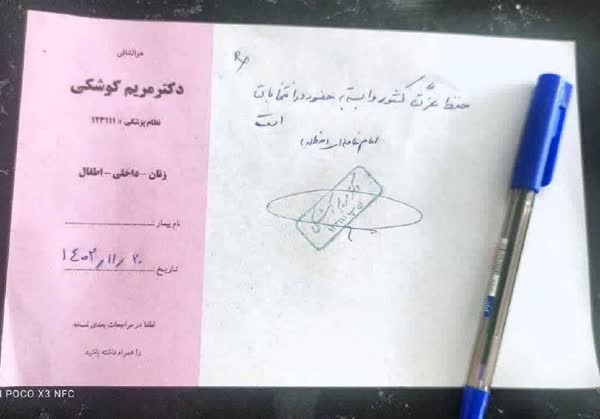 هوالشافی
دکتر مریم کوشکی
نظام پزشکی : ۱۲۳۱۱۱
زنان - داخلی - اطفال
نام بیمار:
تاریخ ۱۴۰۲/۱۱/۲۰
لطفا در مراجعات بعدی نسخه
را همراه داشته باشید
Rp
حفظ عزّت کشور وابسته به حضور در انتخابات
است
امام خامنه ای (مدظله)
POCO X3 NFC